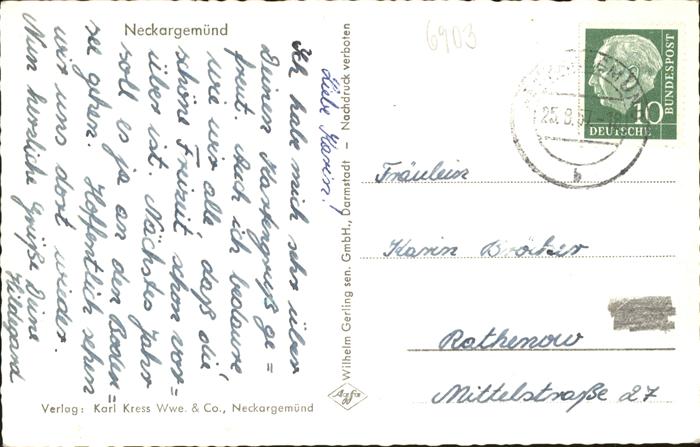 Neckargemünd
Liebe Karin!
Ich habe mich sehr über
Deinen Kartengruß ge=
freut. Auch ich bedaure
wie wir alle, daß die
schöne Freizeit schon vor=
über ist. Nächstes Jahr
soll es ja an den Boden=
see gehen. Hoffentlich sehen
wir uns dort wieder.
Nun herzliche Grüße Deine
Hildegard
Verlag: Karl Kress Wwe. & Co., Neckargemünd
Wilhelm Gerling sen. GmbH., Darmstadt — Nachdruck verboten
Agfa
6903
DEUTSCHE
BUNDESPOST
10
25.8.
b
Fräulein
Karin Bröcker
Rathenow
Mittelstraße 27